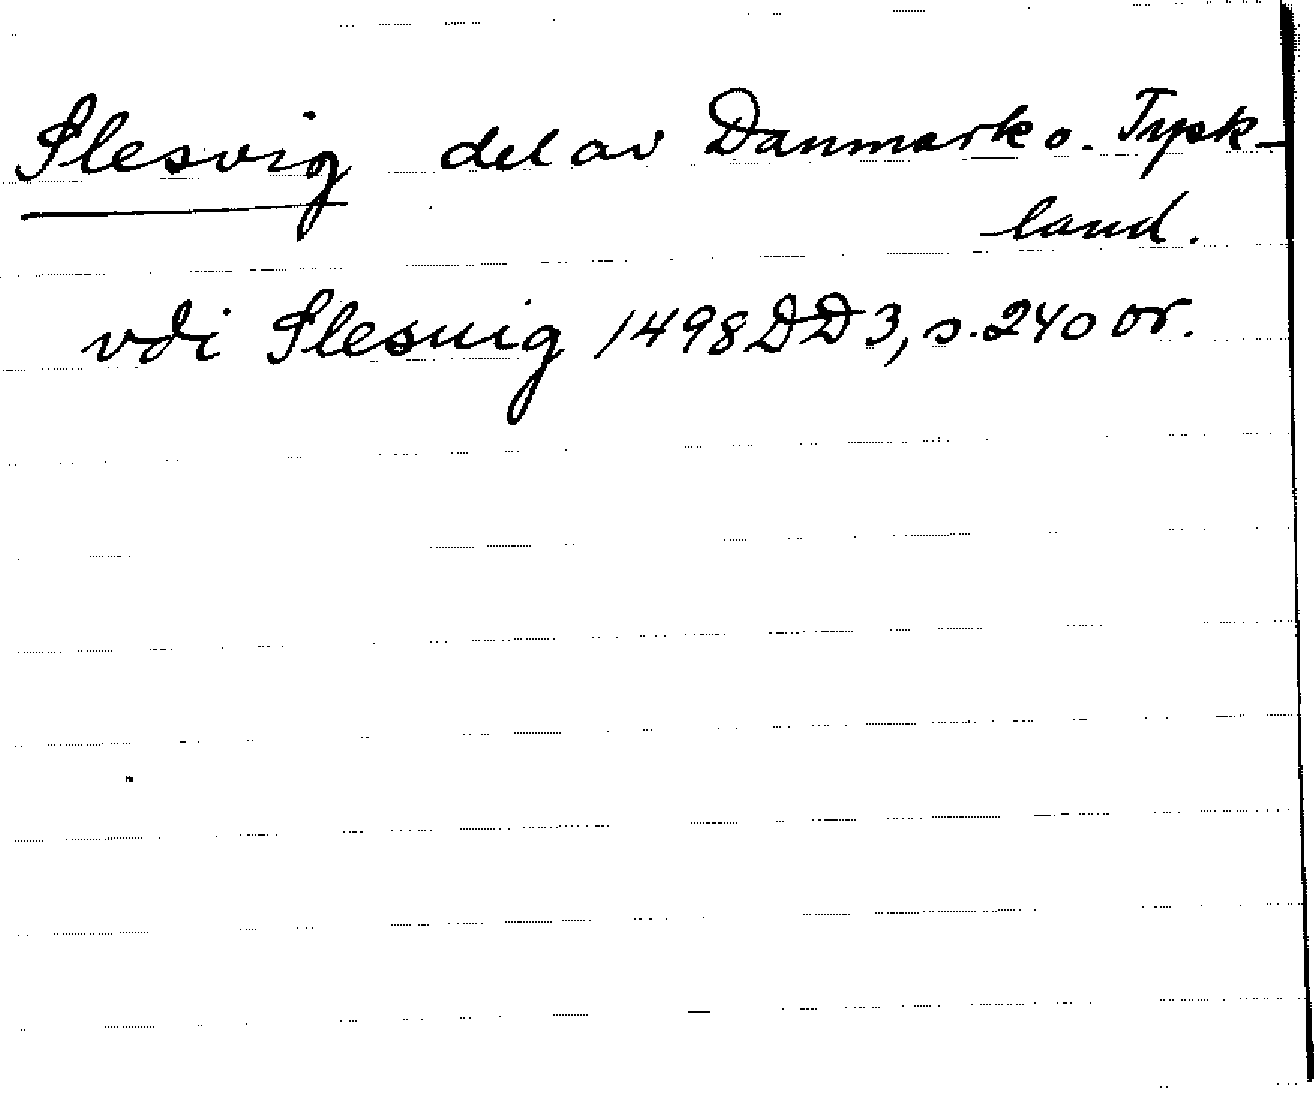 Slesvig del av Danmark o. Tysk-
land.
vdi Slesuig 1498 DD3, s. 240 or.